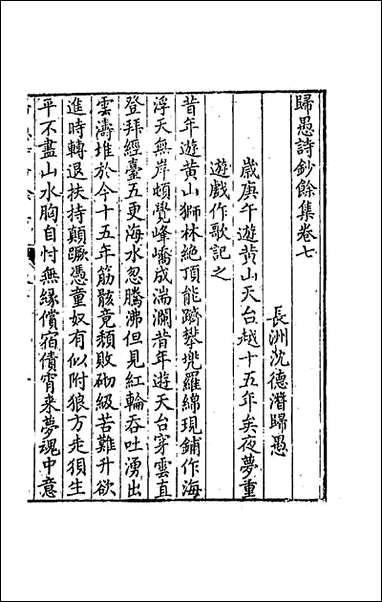 歸愚詩鈔餘集卷七
長洲沈德潛歸愚
歲庚午遊黄山天台越十五年矣夜夢重
遊戲作歌記之
昔年遊黄山獅林絶頂能躋攀兠羅綿現鋪作海
浮天無岸頓覺峰巒成湍瀾昔年遊天台穿雲直
登拜經臺五更海水忽騰沸但見紅輪吞吐湧出
雲濤堆於今十五年筋骸竟頽敗砌級苦難升欲
進時轉退扶持顛蹶憑童奴有似附狼方走狽生
平不盡山水胸自忖無緣償宿債宵来夢魂中意